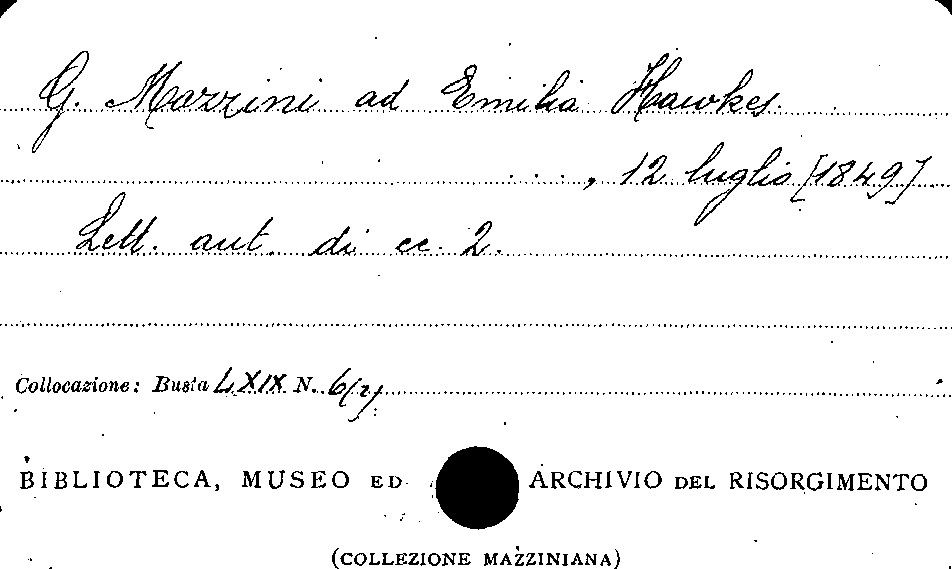 G. Mazzini ad Emilia Hawkes.
..., 12 luglio [1849]
Lett. aut. di cc. 2.
Collocazione: Busta LXIX N. 6(2)
BIBLIOTECA, MUSEO ED ARCHIVIO DEL RISORGIMENTO
(COLLEZIONE MAZZINIANA)